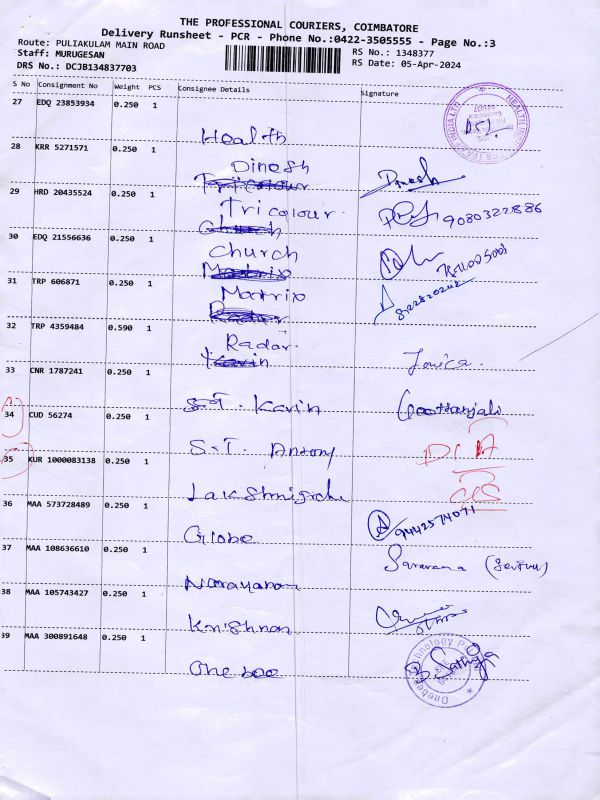 THE PROFESSIONAL COURIERS, COIMBATORE
Delivery Runsheet - PCR - Phone No.:0422-3505555 - Page No.:3
Route: PULIAKULAM MAIN ROAD
RS No.: 1348377
Staff: MURUGESAN
RS Date: 05-Apr-2024
DRS No.: DCJB134837703
S No Consignment No Weight PCS Consignee Details Signature
27 EDQ 23853934 0.250 1
Health
28 KRR 5271571 0.250 1
Dinesh Dinesh
29 HRD 20435524 0.250 1
Tricolour. 9080322886
30 EDQ 21556636 0.250 1
Church
31 TRP 606871 0.250 1
Matrix
32 TRP 4359484 0.590 1
Radar.
33 CNR 1787241 0.250 1
S.T. Kavin
34 CUD 56274 0.250 1
S.T. Antony
35 KUR 1000083138 0.250 1
36 MAA 573728489 0.250 1
Globe 9442574071
37 MAA 108636610 0.250 1
Narayanan Saravana
38 MAA 105743427 0.250 1
Krishnan
39 MAA 300891648 0.250 1
One boo B. Sathya